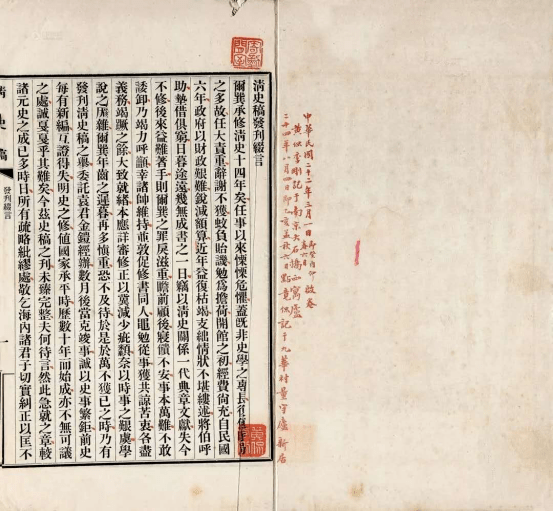 中華民國二十二年三月一日
黃侃季剛記于南京大石橋西寓廬
二十四年八月四日
記于九華村量守廬新居
清史稿發刊綴言
爾巽承修清史十四年矣任事以來慄慄危懼蓋旣非史學之專長
之多故任大責重辭謝不獲蚊負貽譏勉爲擔荷開館之初經費尙充自民國
六年政府以財政艱難銳減額算近年益復枯竭支絀情狀不堪縷述將伯呼
助墊借俱窮日暮途遠幾無成書之一日竊以淸史關係一代典章文獻失今
不修後來益難著手則爾巽之罪戾滋重瞻前顧後寢饋不安事本萬難不敢
諉卸乃竭力呼籲幸諸帥維持並敦促修書同人黽勉從事獲共諒苦衷各盡
義務竭蹶之餘大致就緖本應詳審修正以冀減少疵纇奈以時事之艱虞學
說之厖雜爾巽年齒之遲暮再多愼重恐不及待於是於萬不獲已之時乃有
發刊淸史稿之舉委託袁君金鎧經辦數月後當克竣事誠以史事繁鉅前史
每有新編互證得失明史之修値國家承平時歷數十年而始成亦不無可議
之處誠戞戞乎其難矣今茲史稿之刊未臻完整夫何待言然此急就之章較
諸元史之成已多時日所有疏略紕繆處敬乞海內諸君子切實糾正以匡不
清史稿
發刊綴言
一